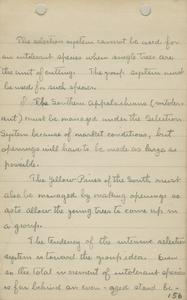 The selection system cannot be used for
an intolerant species when single trees are
the unit of cutting. The group system must
be used for such species.
The Southern Appalachians (intoler-
ant) must be managed under the Selection
System because of market conditions, but
openings will have to be made as large as
possible.
The Yellow Pines of the South must
also be managed by making openings so
as to allow the young trees to come up in
a group.
The tendency of the intensive selection
system is toward the group idea. Even
so the total increment of intolerant species
is far behind an even-aged stand be-
158